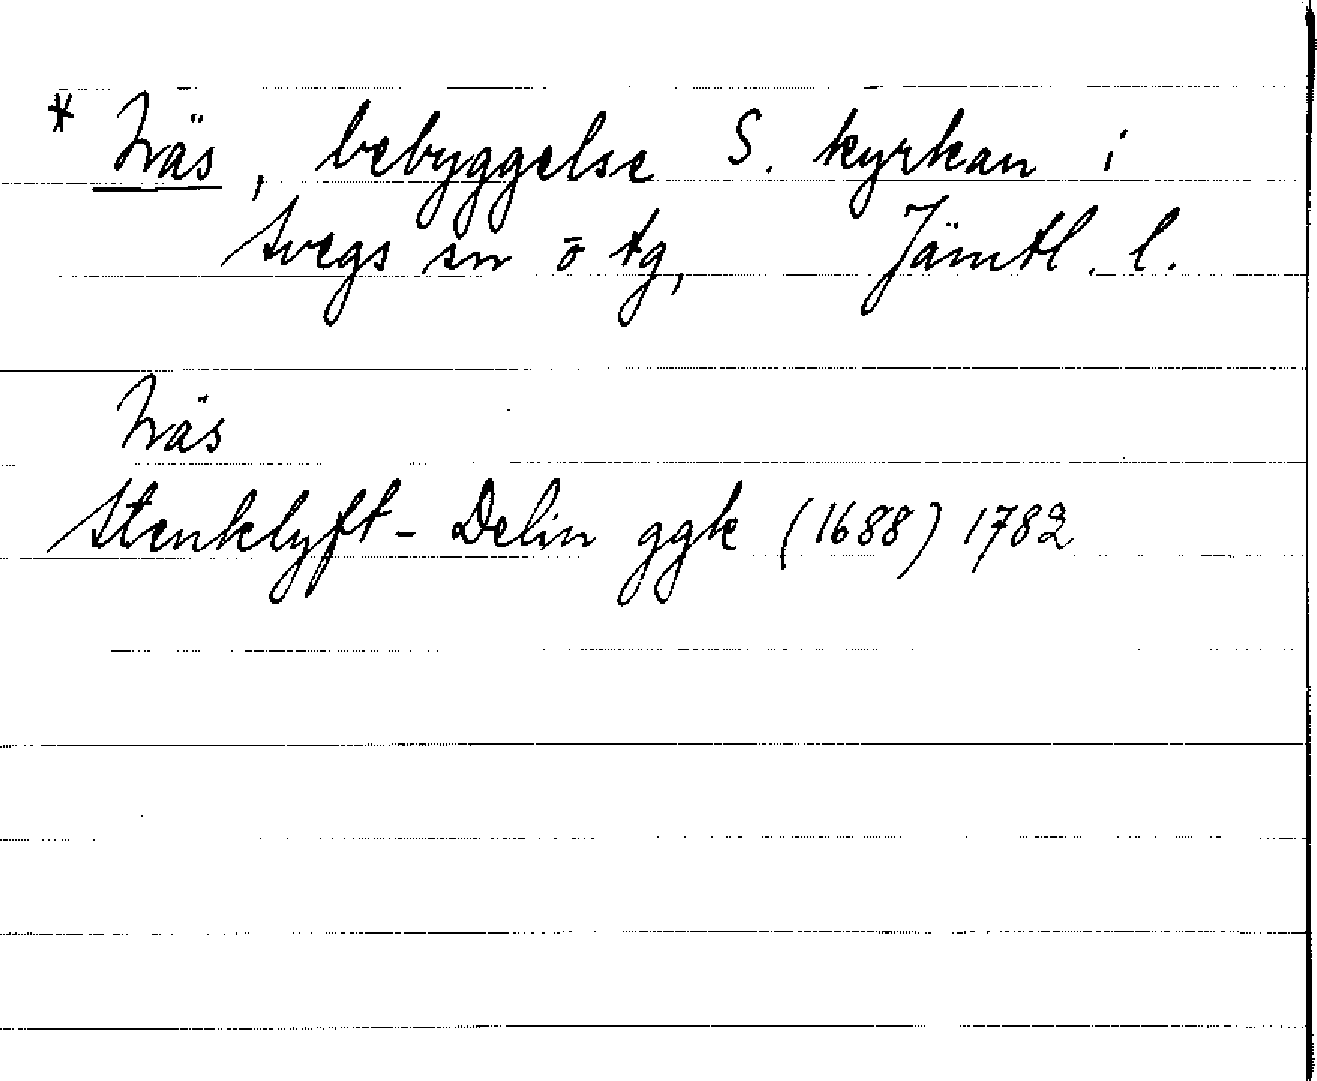 * Näs, bebyggelse S. kyrkan i
Svegs sn o tg, Jämtl. l.
Näs
Stenklyft - Delin ggk (1688) 1782